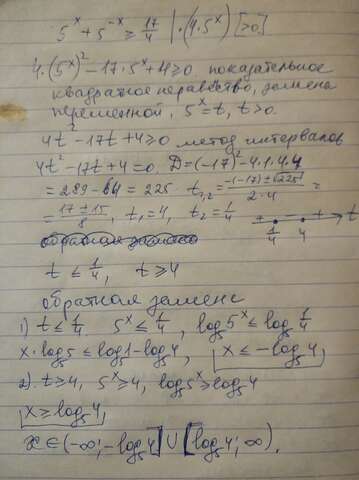 5^x + 5^{-x} ≥ 17/4 | ·(4·5^x) [>0]
4·(5^x)² - 17·5^x + 4 ≥ 0, показательное
квадратное неравенство, замена
переменной, 5^x = t, t > 0.
4t² - 17t + 4 ≥ 0 метод интервалов
4t² - 17t + 4 = 0. D = (-17)² - 4·1·4·4
= 289 - 64 = 225. t₁,₂ = (-(-17) ± √225)/(2·4) =
= (17 ± 15)/8, t₁ = 4, t₂ = 1/4
+ - + t
1/4 4
обратная замена
t ≤ 1/4, t ≥ 4
обратная замена
1) t ≤ 1/4, 5^x ≤ 1/4, log₅5^x ≤ log₅ 1/4
x·log₅5 ≤ log₅1 - log₅4, x ≤ -log₅4,
2). t ≥ 4, 5^x ≥ 4, log₅5^x ≥ log₅4
x ≥ log₅4,
x ∈ (-∞; -log₅4] ∪ [log₅4; ∞).